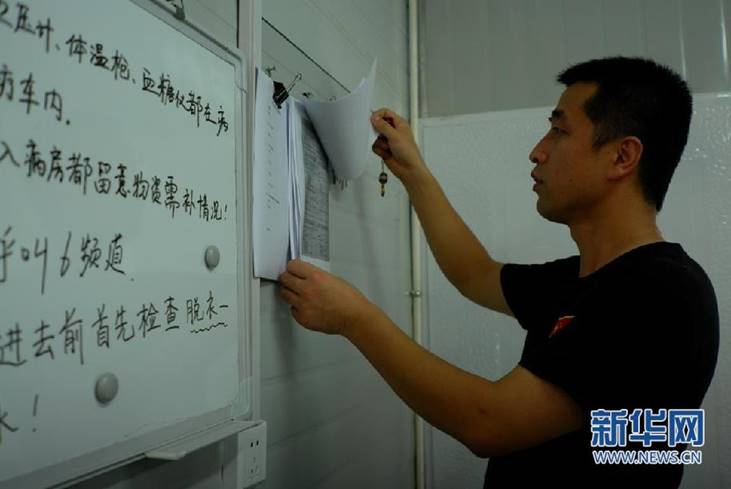 压计、体温枪、血糖仪都在病
房车内.
入病房都留意物资需补情况!
呼叫6频道.
进去前首先检查脱衣一
水!
新华网
WWW.NEWS.CN